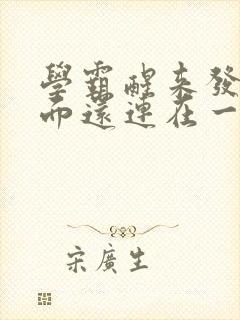 學霸醒來發
而還連在一
宋廣生